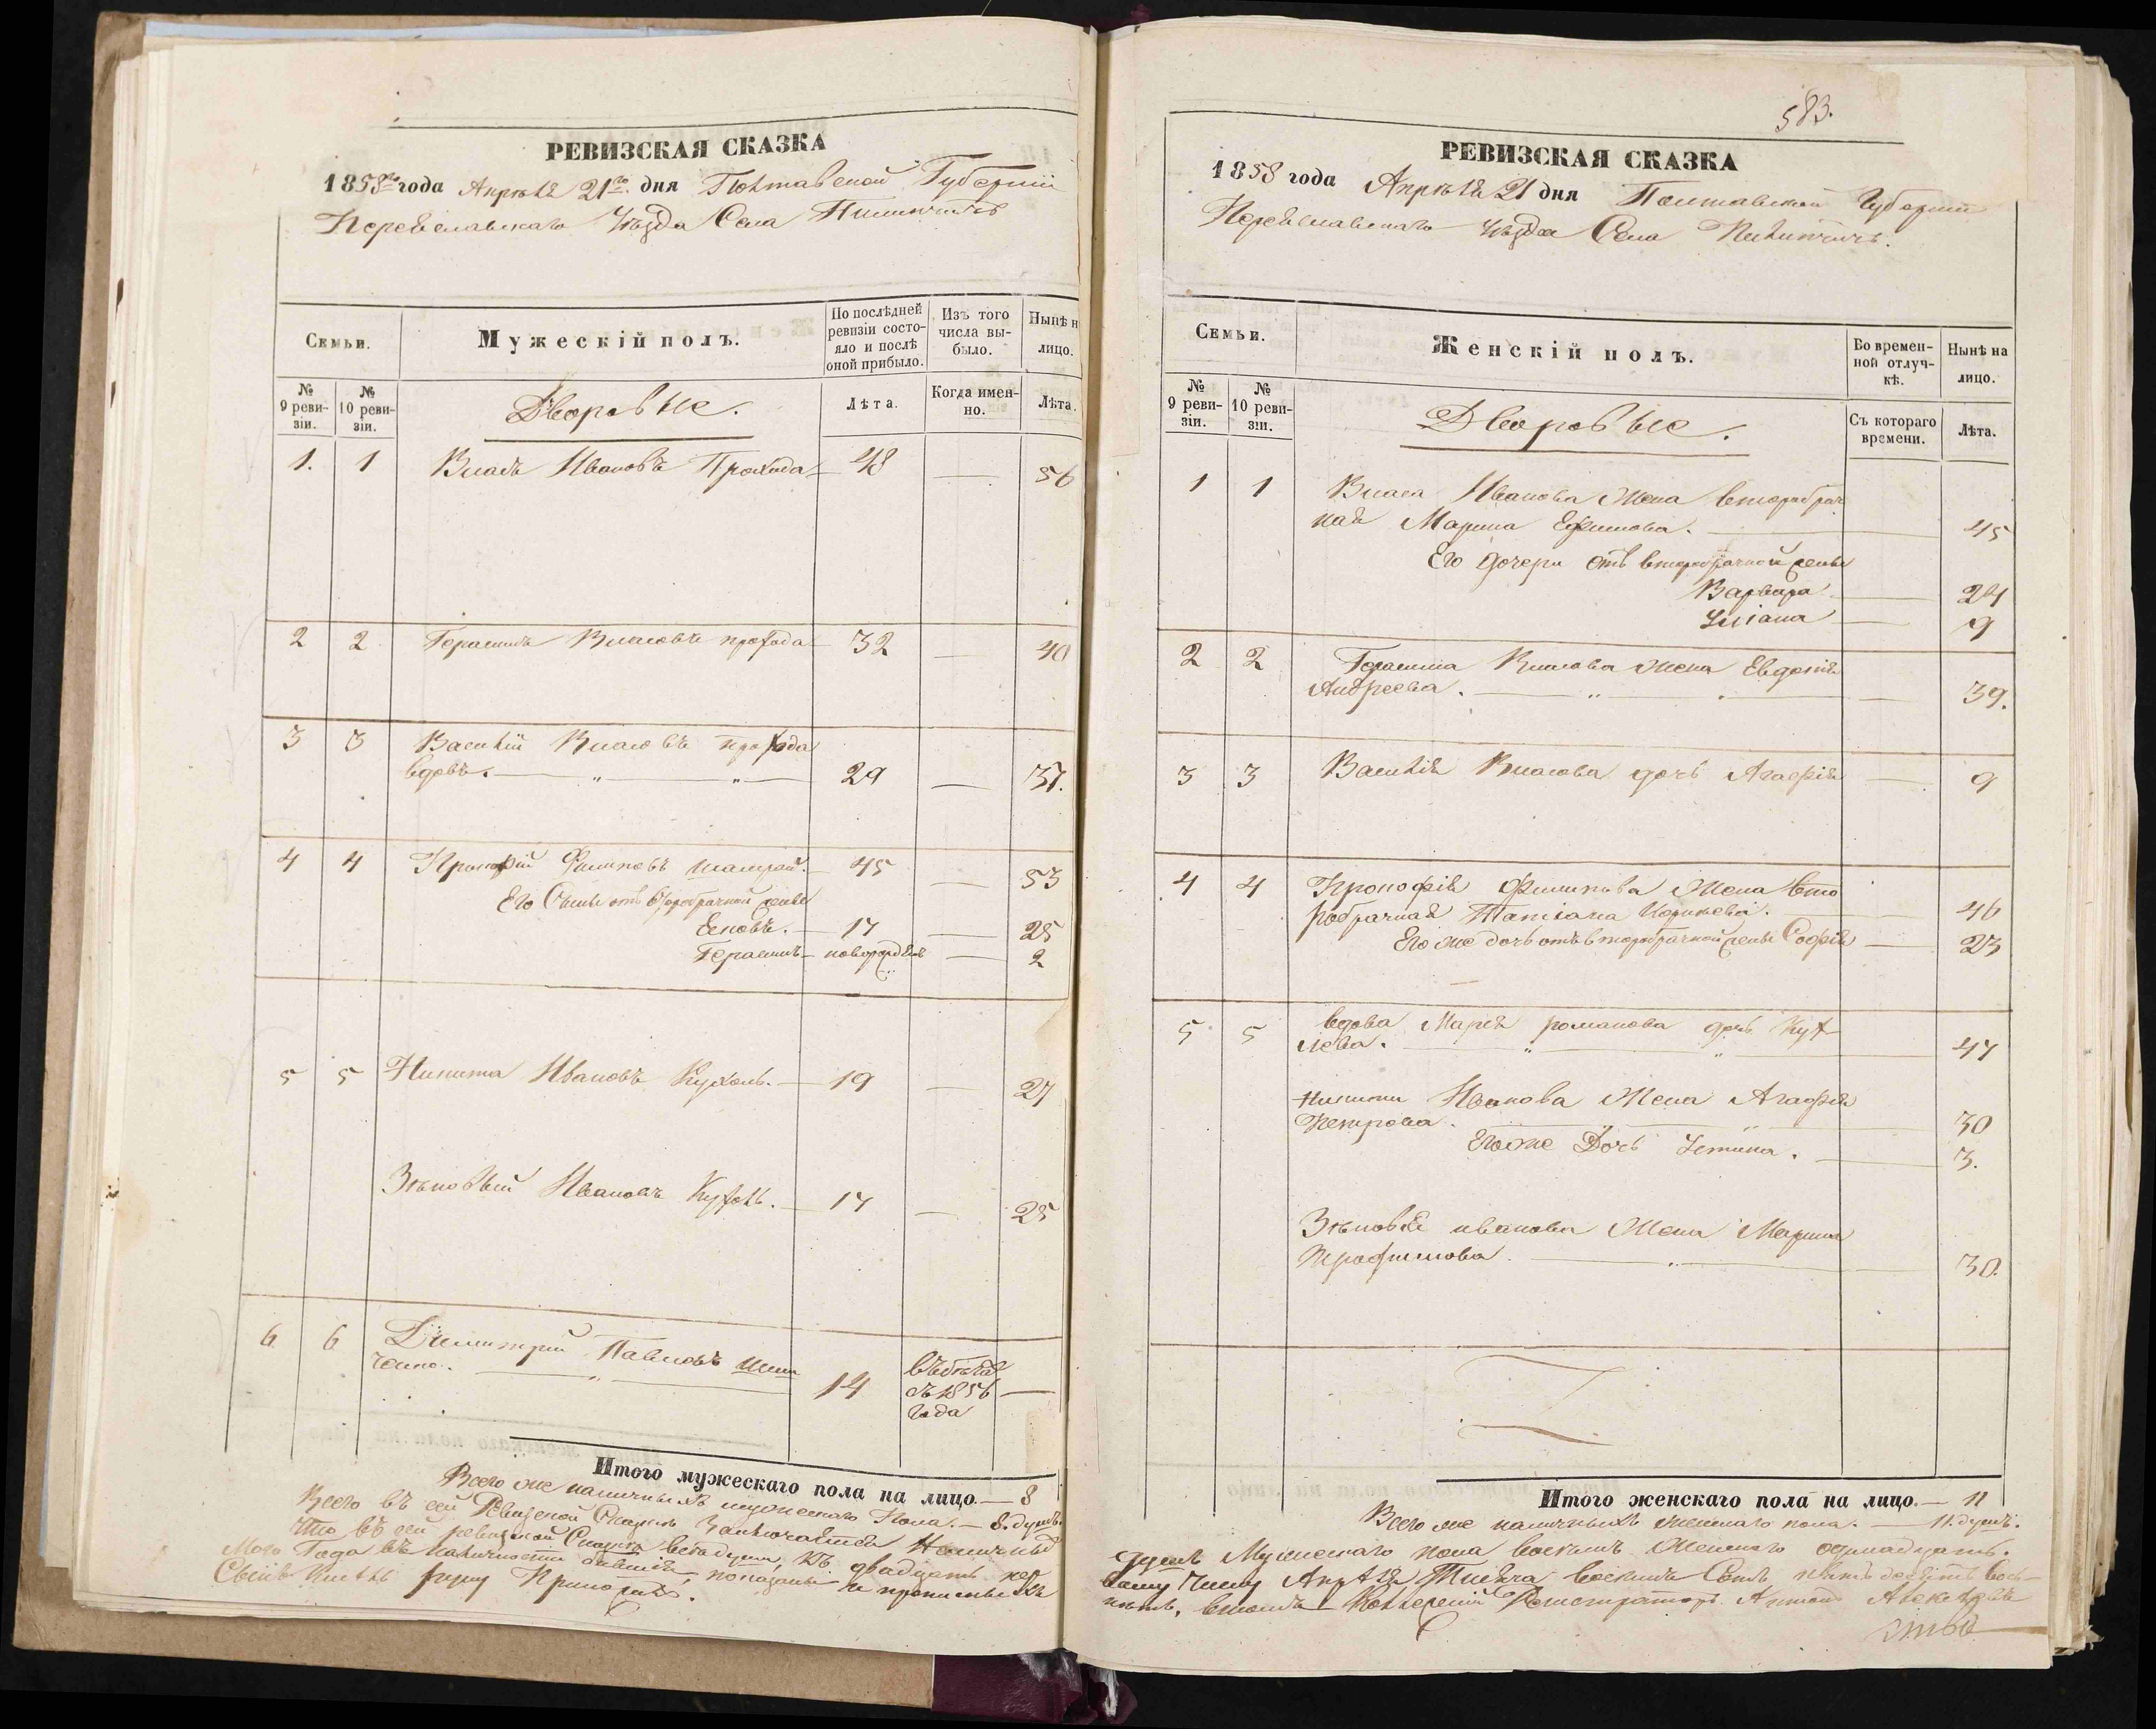 РЕВИЗСКАЯ СКАЗКА
1858го года Апрѣля 21го дня Полтавской Губерніи
Переяславскаго Уѣзда Села
Семьи.
Мужескій полъ.
По послѣдней ревизіи состояло и послѣ оной прибыло.
Изъ того числа выбыло.
Нынѣ н лицо.
№ 9 ревизіи.
№ 10 ревизіи.
Дворовые.
Лѣта.
Когда именно.
Лѣта.
1. 1 Власъ Ивановъ Прохода 48 — 56
2 2 Герасимъ Власовъ прохода 32 — 40
3 3 Василій Власовъ прохода
вдовъ. — „ — „ — 29 — 37.
4 4 Прокофій Филиповъ Шамрай. — 45 — 53
Его Сыны отъ второбрачной жены
17 — 25
Герасимъ — новорожденъ — 2
5 5 Никита Ивановъ Кухоль. — 19 — 27
Зѣновій Ивановъ Кухоль. — 17 — 25
6 6 Димитрій Павловъ
ченко. — „ — 14 въ бѣгахъ съ 1856 года —
Итого мужескаго пола на лицо. — 8
Всего же наличныхъ мужескаго Пола. — 8. душъ.
Всего въ сей Ревизской Сказкѣ Заключается Наличныхъ
Что въ сей ревизской Сказкѣ всѣ души, къ двадцать
Мого Года въ наличности бывшія, показаны и прописныхъ
руку Приложилъ.
583.
РЕВИЗСКАЯ СКАЗКА
1858 года Апрѣля 21 дня Полтавской Губерніи
Переяславскаго Уѣзда Села
Семьи.
Женскій полъ.
Во временной отлучкѣ.
Нынѣ на лицо.
№ 9 ревизіи.
№ 10 ревизіи.
Дворовые.
Съ котораго времени.
Лѣта.
1 1 Власа Иванова Жена второбрач
ная Марина Ефимова. — 45
Его дочери отъ второбрачной жены
Варвара — 24
Уліана — 9
2 2 Герасима Власова жена Евдокія
Андреева. — „ — 39.
3 3 Василія Власова дочь Агафія — 9
4 4 Прокофія Филипова Жена вто
робрачная Татіана — 46
Его же дочь отъ второбрачной жены Софія — 23
5 5 вдова Марія романова дочь Кух
лева. — „ — „ — 47
Никиты Иванова Жена Агафія
Петрова. — 30
Егоже Дочь Устина. — 3.
Зѣновія иванова Жена Марина
Трофимова. — „ — 30.
Итого женскаго пола на лицо. — 11
Всего же наличныхъ женскаго пола. — 11. душъ.
Душъ Мужескаго пола восемъ Женскаго одинадцать.
Апрѣля Тысяча восемь Сотъ пятьдесятъ вось
Колежскій Регистраторъ Антонъ